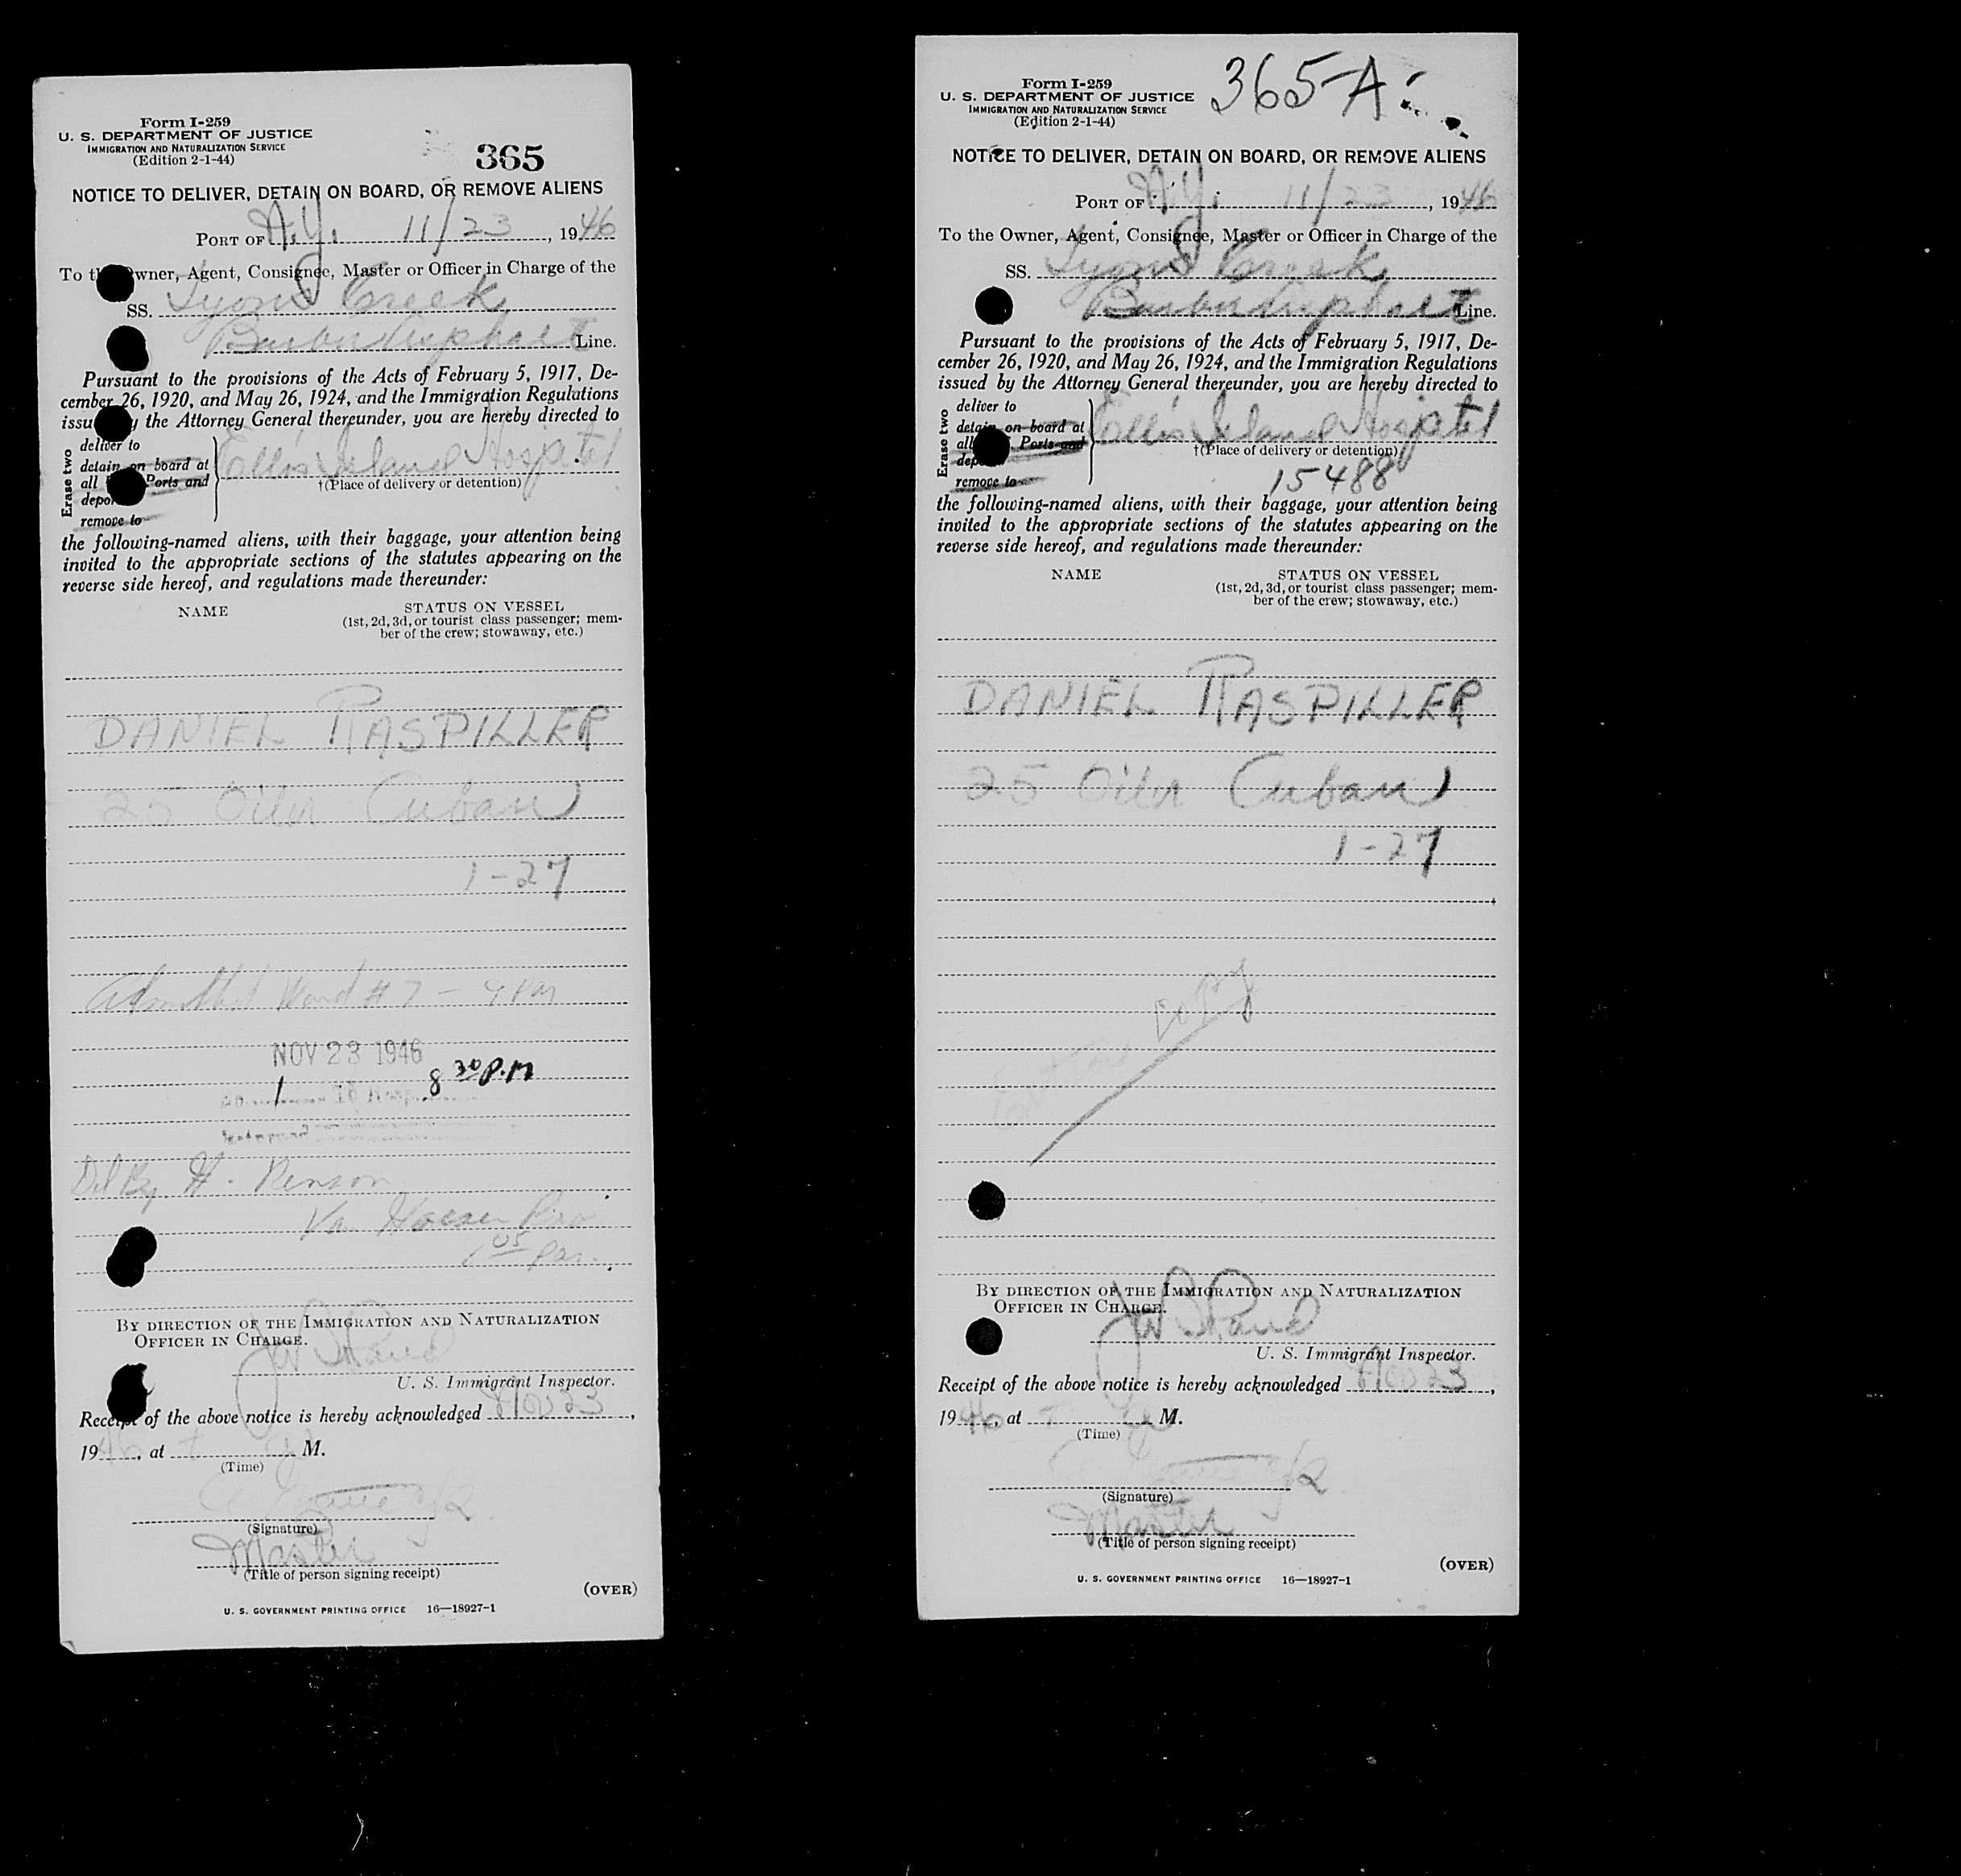 Form I-259
U. S. DEPARTMENT OF JUSTICE
IMMIGRATION AND NATURALIZATION SERVICE
(Edition 2-1-44)
365
NOTICE TO DELIVER, DETAIN ON BOARD, OR REMOVE ALIENS
PORT OF N.Y. 11/23, 1946
To the Owner, Agent, Consignee, Master or Officer in Charge of the
SS. Lyons Creek
Line.
Pursuant to the provisions of the Acts of February 5, 1917, De-
cember 26, 1920, and May 26, 1924, and the Immigration Regulations
issued by the Attorney General thereunder, you are hereby directed to
Erase two
deliver to
detain on board at
all Ports and
depo
remove to
Ellis Island Hospital
†(Place of delivery or detention)
the following-named aliens, with their baggage, your attention being
invited to the appropriate sections of the statutes appearing on the
reverse side hereof, and regulations made thereunder:
NAME
STATUS ON VESSEL
(1st, 2d, 3d, or tourist class passenger; mem-
ber of the crew; stowaway, etc.)
DANIEL RASPILLER
25 Oiler (Cuban)
1-27
Admitted Ward #7 - 9 PM
NOV 23 1946
1 To Hosp. 8 30 P.M
Del By H. Renson
1 05 Pm.
BY DIRECTION OF THE IMMIGRATION AND NATURALIZATION
OFFICER IN CHARGE.
U. S. Immigrant Inspector.
Receipt of the above notice is hereby acknowledged Nov 23,
1946, at M.
(Time)
(Signature)
Master
(Title of person signing receipt)
(OVER)
U. S. GOVERNMENT PRINTING OFFICE 16—18927-1
Form I-259
U. S. DEPARTMENT OF JUSTICE
IMMIGRATION AND NATURALIZATION SERVICE
(Edition 2-1-44)
365-A
NOTICE TO DELIVER, DETAIN ON BOARD, OR REMOVE ALIENS
PORT OF N.Y. 11/23, 1946
To the Owner, Agent, Consignee, Master or Officer in Charge of the
SS. Lyons Creek
Line.
Pursuant to the provisions of the Acts of February 5, 1917, De-
cember 26, 1920, and May 26, 1924, and the Immigration Regulations
issued by the Attorney General thereunder, you are hereby directed to
Erase two
deliver to
detain on board at
all Ports and
dep
remove to
Ellis Island Hospital
†(Place of delivery or detention)
15488
the following-named aliens, with their baggage, your attention being
invited to the appropriate sections of the statutes appearing on the
reverse side hereof, and regulations made thereunder:
NAME
STATUS ON VESSEL
(1st, 2d, 3d, or tourist class passenger; mem-
ber of the crew; stowaway, etc.)
DANIEL RASPILLER
25 Oiler (Cuban)
1-27
copy
BY DIRECTION OF THE IMMIGRATION AND NATURALIZATION
OFFICER IN CHARGE.
U. S. Immigrant Inspector.
Receipt of the above notice is hereby acknowledged Nov 23,
1946, at M.
(Time)
(Signature)
Master
(Title of person signing receipt)
(OVER)
U. S. GOVERNMENT PRINTING OFFICE 16—18927-1